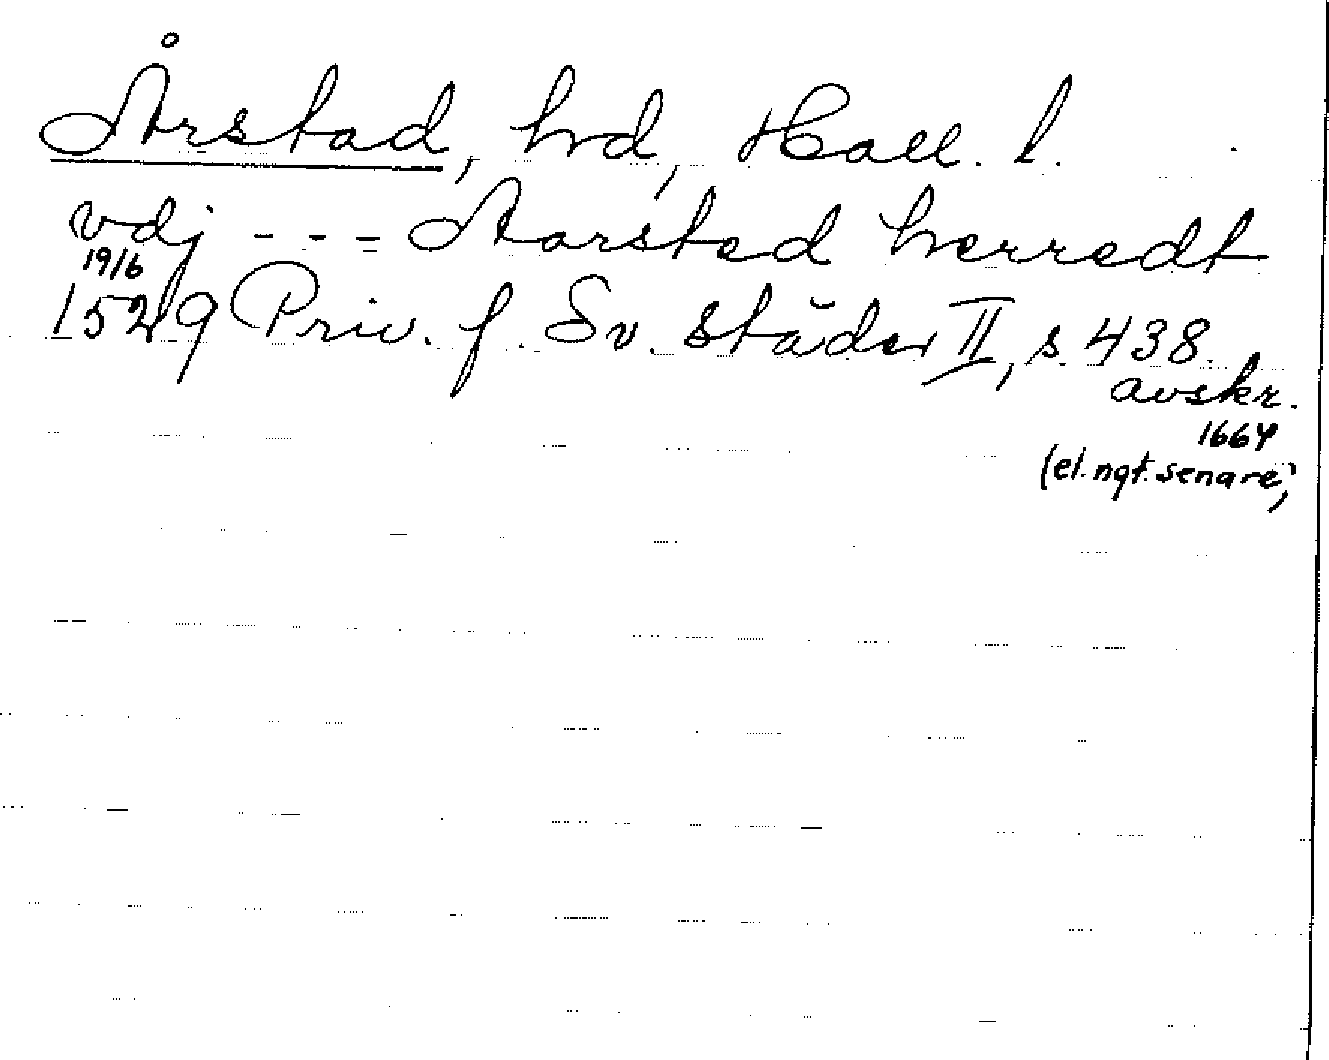 Årstad, hrd, Hall. l.
vdj - - - Aarsted herredt
19/6
1529 Priv. f. Sv. städer II, s. 438
avskr.
1664
(el. ngt. senare)